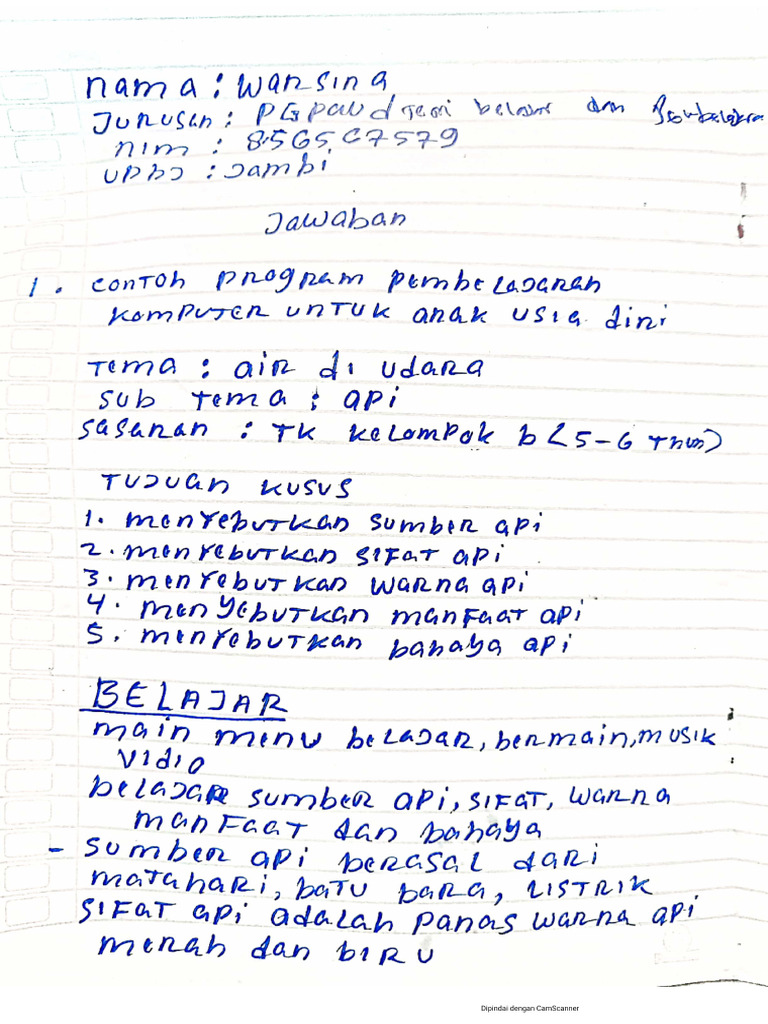 nama : Warsina
Jurusan : PGpaud Teori belajar dan
nim : 856567579
UPBJJ : Jambi
Jawaban
1. contoh program pembelajaran
komputer untuk anak usia dini
Tema : air di udara
sub Tema : api
sasaran : TK kelompok b (5-6 Thun)
TUJUAN KUSUS
1. menyebutkan sumber api
2. menyebutkan sifat api
3. menyebutkan warna api
4. menyebutkan manfaat api
5. menyebutkan bahaya api
BELAJAR
main menu belajar, bermain, musik
vidio
belajar sumber api, sifat, warna
manfaat dan bahaya
- sumber api berasal dari
matahari, batu bara, listrik
sifat api adalah panas warna api
merah dan biru
Dipindai dengan CamScanner